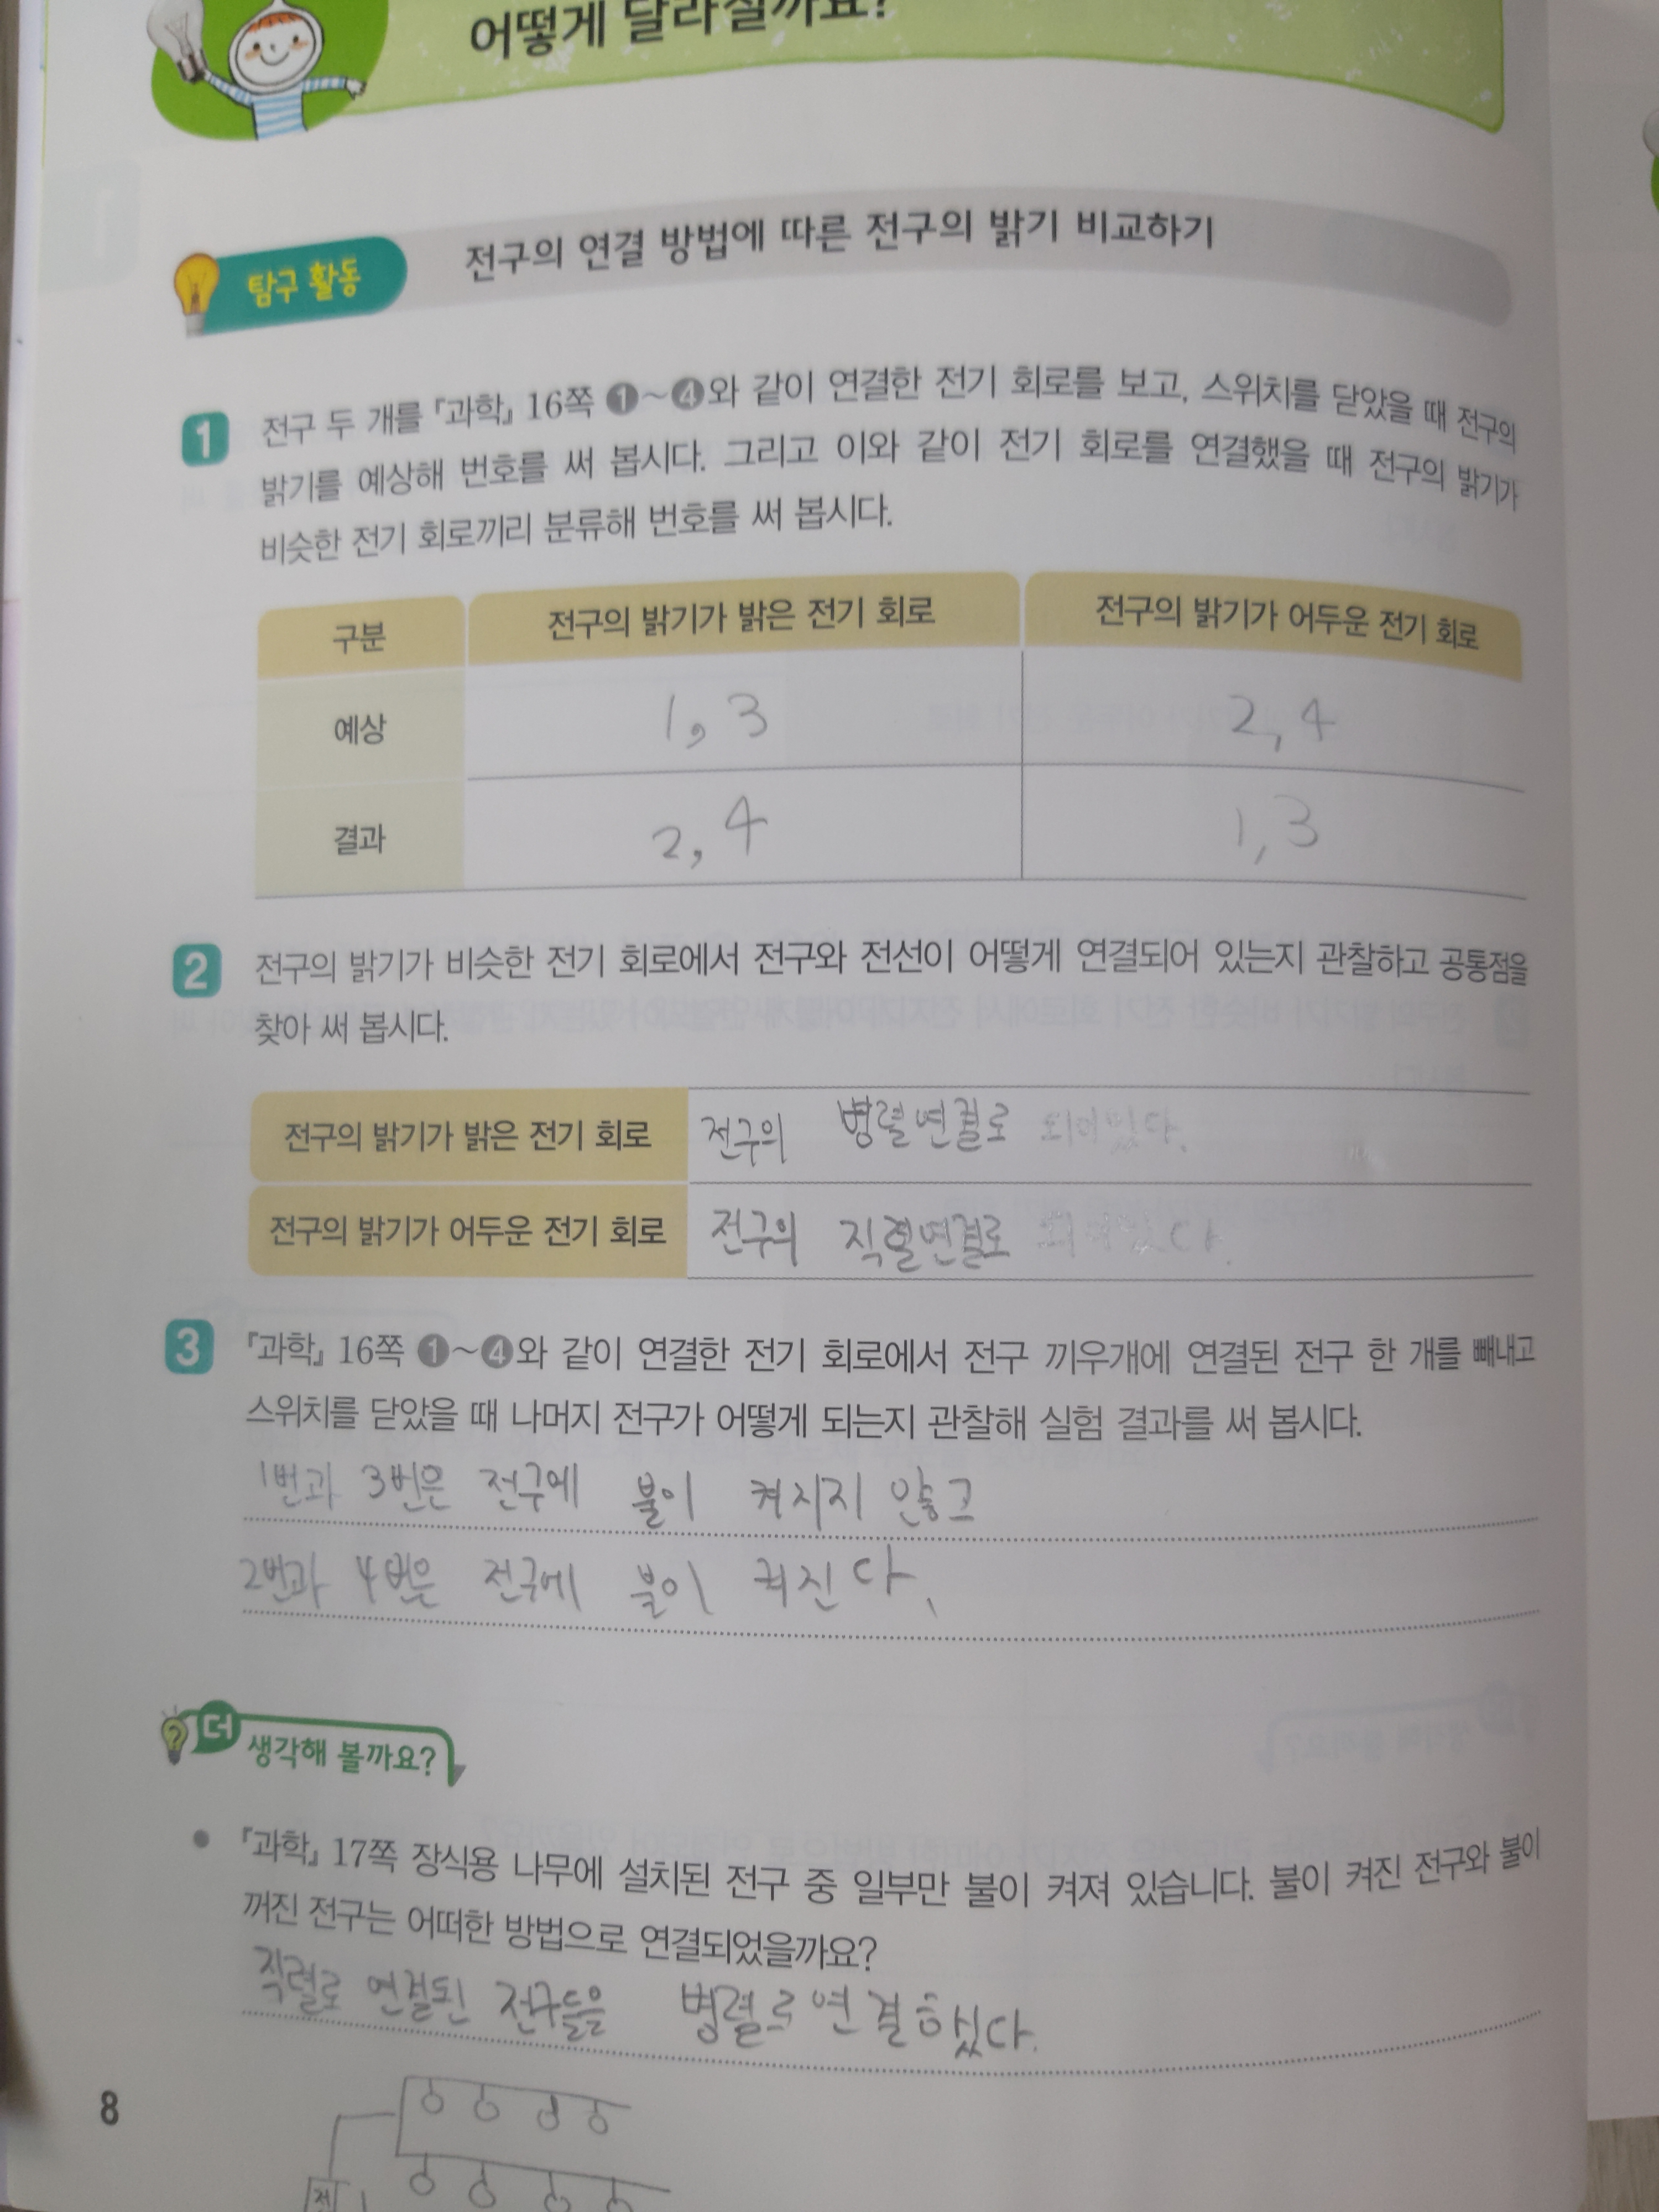 어떻게 달라질까요?
탐구 활동
전구의 연결 방법에 따른 전구의 밝기 비교하기
1 전구 두 개를 『과학』 16쪽 ❶~❹와 같이 연결한 전기 회로를 보고, 스위치를 닫았을 때 전구의
밝기를 예상해 번호를 써 봅시다. 그리고 이와 같이 전기 회로를 연결했을 때 전구의 밝기가
비슷한 전기 회로끼리 분류해 번호를 써 봅시다.
구분 전구의 밝기가 밝은 전기 회로 전구의 밝기가 어두운 전기 회로
예상 1, 3 2, 4
결과 2, 4 1, 3
2 전구의 밝기가 비슷한 전기 회로에서 전구와 전선이 어떻게 연결되어 있는지 관찰하고 공통점을
찾아 써 봅시다.
전구의 밝기가 밝은 전기 회로 전구의 병렬연결로 되어있다.
전구의 밝기가 어두운 전기 회로 전구의 직렬연결로 되어있다.
3 『과학』 16쪽 ❶~❹와 같이 연결한 전기 회로에서 전구 끼우개에 연결된 전구 한 개를 빼내고
스위치를 닫았을 때 나머지 전구가 어떻게 되는지 관찰해 실험 결과를 써 봅시다.
1번과 3번은 전구에 불이 켜지지 않고
2번과 4번은 전구에 불이 켜진다.
더 생각해 볼까요?
● 『과학』 17쪽 장식용 나무에 설치된 전구 중 일부만 불이 켜져 있습니다. 불이 켜진 전구와 불이
꺼진 전구는 어떠한 방법으로 연결되었을까요?
직렬로 연결된 전구들을 병렬로 연결했다.
8
전